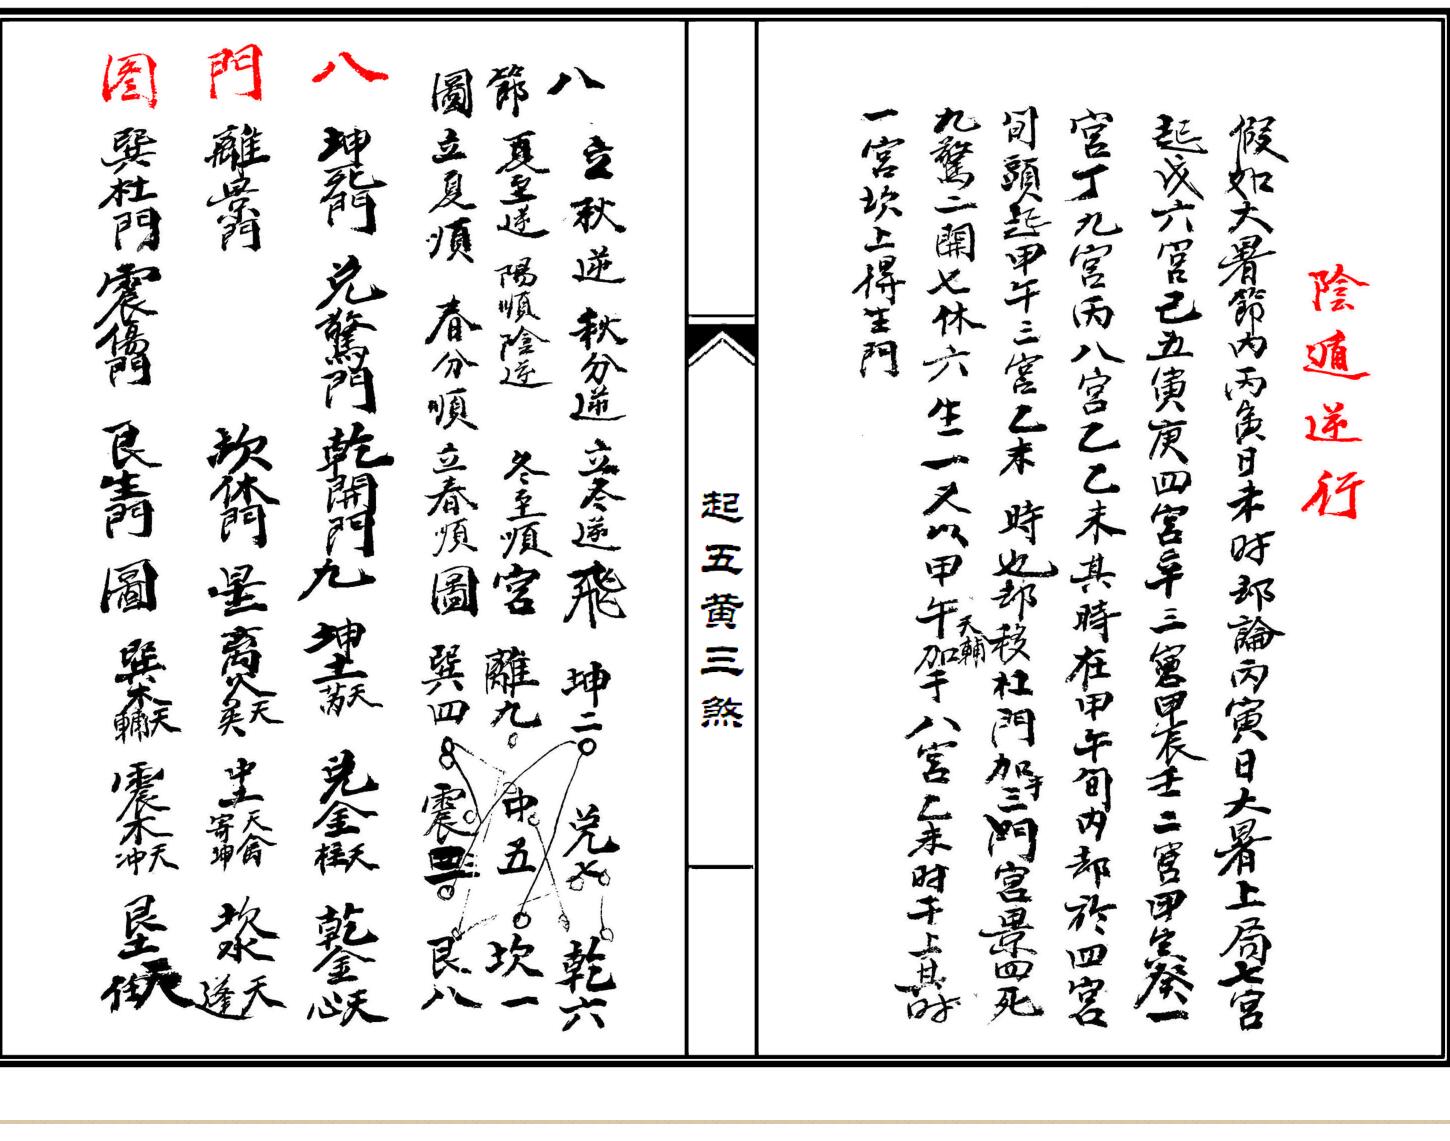 陰遁逆行
假如大暑節内丙寅日未时却論丙寅日大暑上局七宮
起戊六宮己五寅庚四宮辛三宮甲辰壬二宮甲寅癸一
宮丁九宮丙八宮乙乙未其時在甲午旬内却於四宮
旬頭起甲午三宮乙未 時也却移杜門加于三門宮景四死
九驚二開七休六生一又以甲午天輔加于八宮乙未时干上其时
一宮坎上得生門
起五黄三煞
八 立秋逆 秋分逆 立冬逆 飛 坤二 兑七 乾六
節 夏至逆 陽順陰逆 冬至順 宮 離九 中五 坎一
圖 立夏順 春分順 立春順 圖 巽四 震三 艮八
八 坤死門 兑驚門 乾開門 九 坤土天芮 兑金天柱 乾金天心
門 離景門 坎休門 星 离火天英 中土天禽寄坤 坎水天蓬
图 巽杜門 震傷門 艮生門 圖 巽木天輔 震木天冲 艮土天任